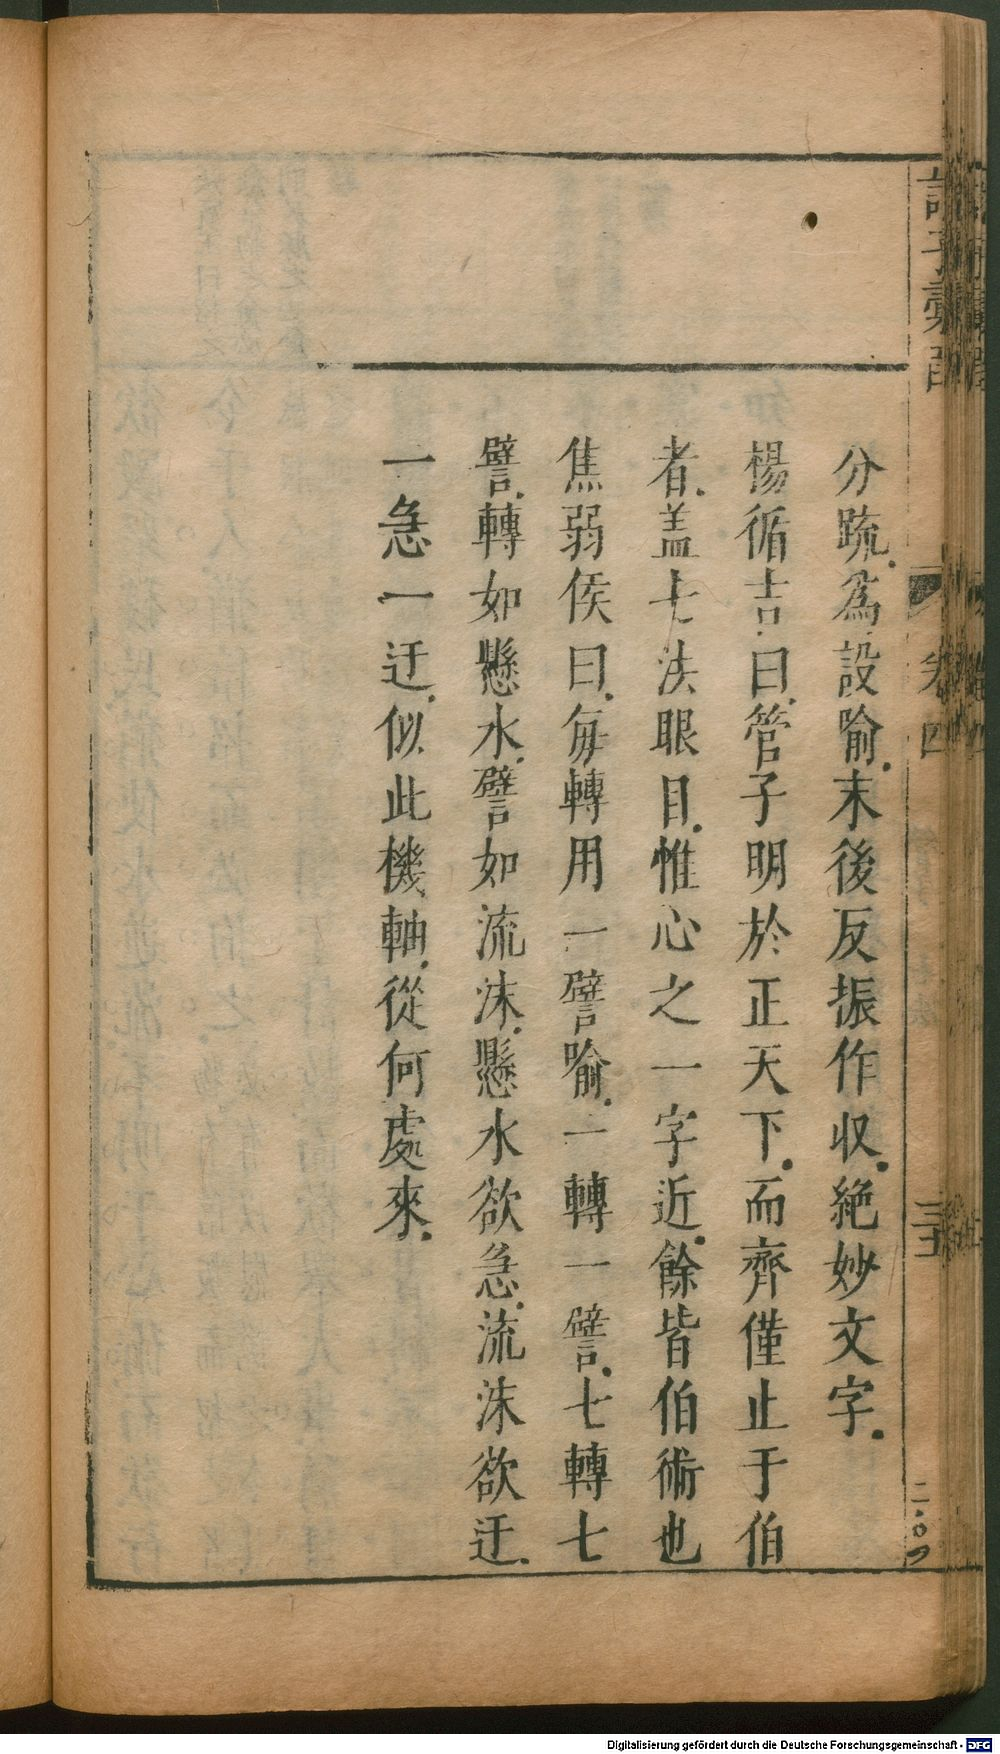 分疏爲設喻末後反振作收絶妙文字
楊循吉曰管子明於正天下而齊僅止于伯
者盖七法眼目惟心之一字近餘皆伯術也
焦弱侯曰每轉用一譬喻一轉一譬七轉七
譬轉如懸水譬如流沫懸水欲急流沫欲迂
一急一迂似此機軸從何處來
卷四
Digitalisierung gefördert durch die Deutsche Forschungsgemeinschaft - DFG